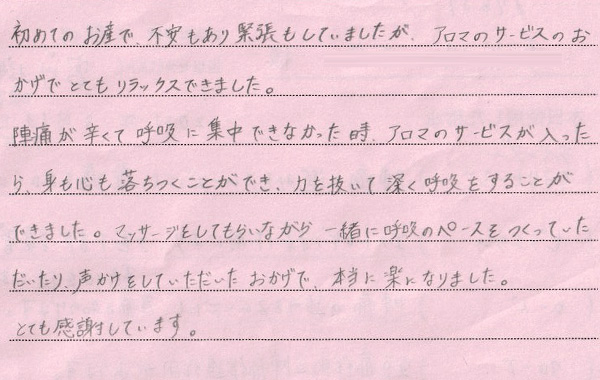 初めてのお産で、不安もあり緊張もしていましたが、アロマのサービスのお
かげでとてもリラックスできました。
陣痛が辛くて呼吸に集中できなかった時、アロマのサービスが入った
ら、身も心も落ちつくことができ、力を抜いて深く呼吸をすることが
できました。マッサージをしてもらいながら一緒に呼吸のペースをつくっていた
だいたり、声かけをしていただいたおかげで、本当に楽になりました。
とても感謝しています。